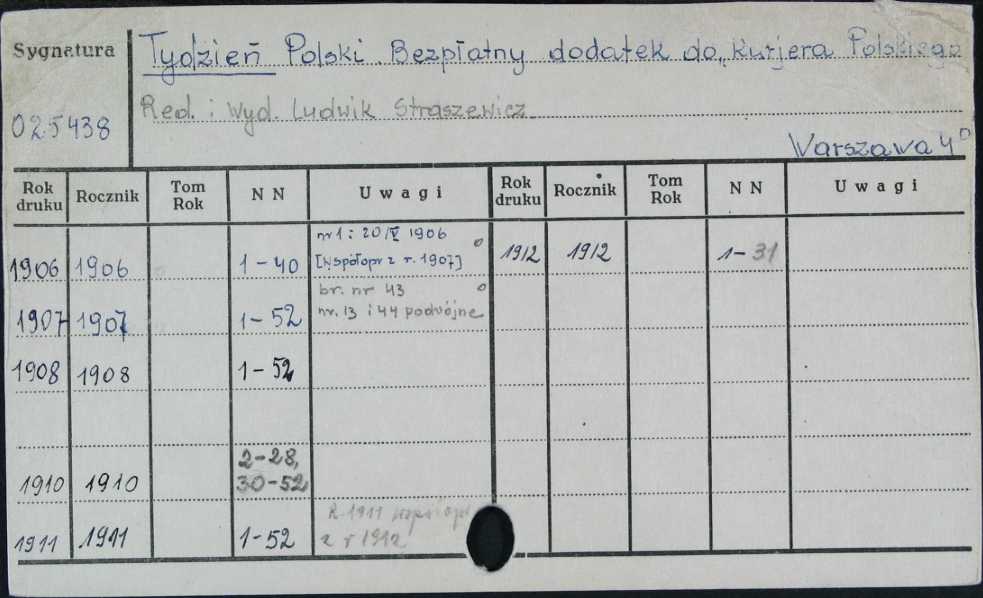 Sygnatura
Tydzień Polski. Bezpłatny dodatek do „Kurjera Polskiego
Red. i wyd. Ludwik Straszewicz
025438
Warszawa 4°
Rok druku Rocznik Tom Rok NN Uwagi Rok druku Rocznik Tom Rok NN Uwagi
1906 1906 1-40 nr 1: 20/V 1906 [Współopr z r. 1907] 1912 1912 1-31
1907 1907 1-52 br. nr 43 nr. 13 i 44 podwójne
1908 1908 1-52
1910 1910 2-28, 30-52
1911 1911 1-52 R. 1911 współopr z r 1912